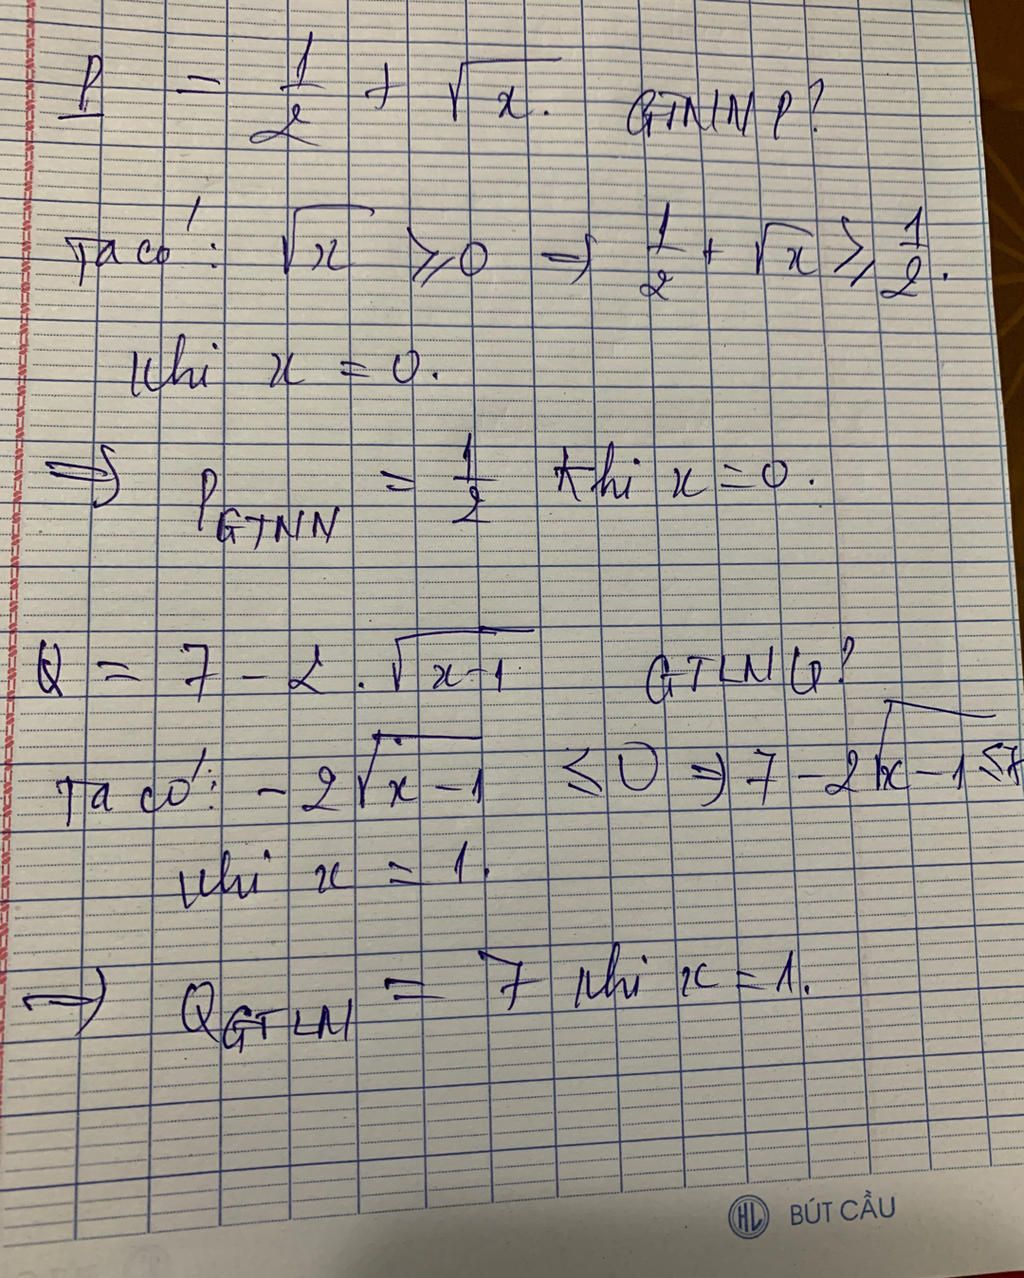 P = 1/2 + √x. GTNN P?
Ta có: √x ⩾ 0 ⇒ 1/2 + √x ⩾ 1/2.
Khi x = 0.
⇒ P GTNN = 1/2 Khi x = 0.
Q = 7 - 2.√x-1 GTLN Q?
Ta có: -2√x-1 ≤ 0 ⇒ 7 - 2√x-1 ≤ 7
Khi x = 1.
⇒ Q GTLN = 7 Khi x = 1.
HL BÚT CẦU